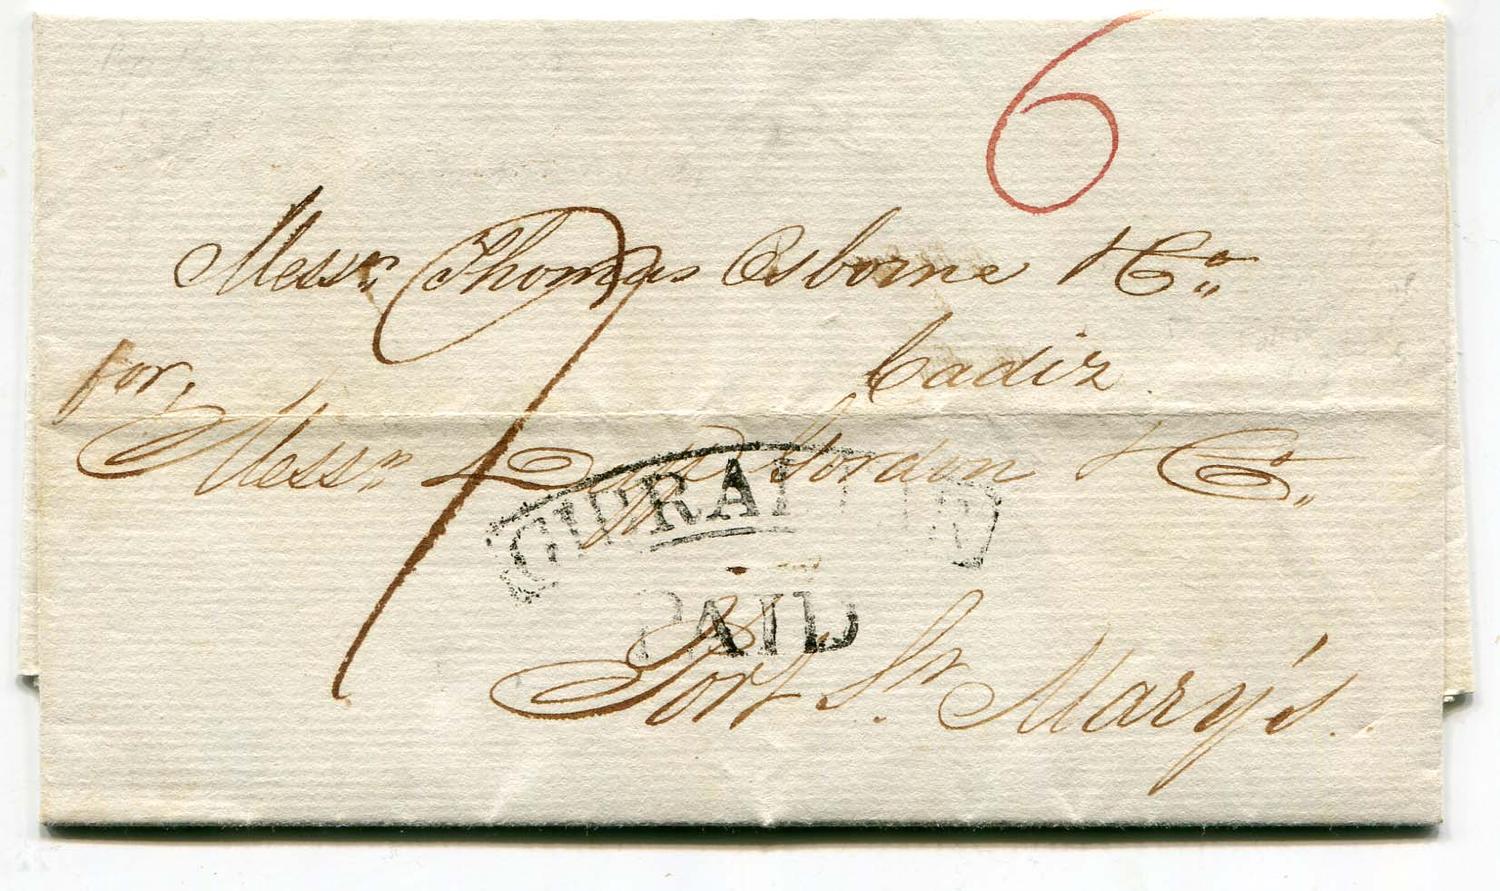 6
Messrs Thomas Osborne & Co.
Cadiz
for,
Messrs Gordon & Co.
GIBRALTAR
PAID
Port St. Mary's.